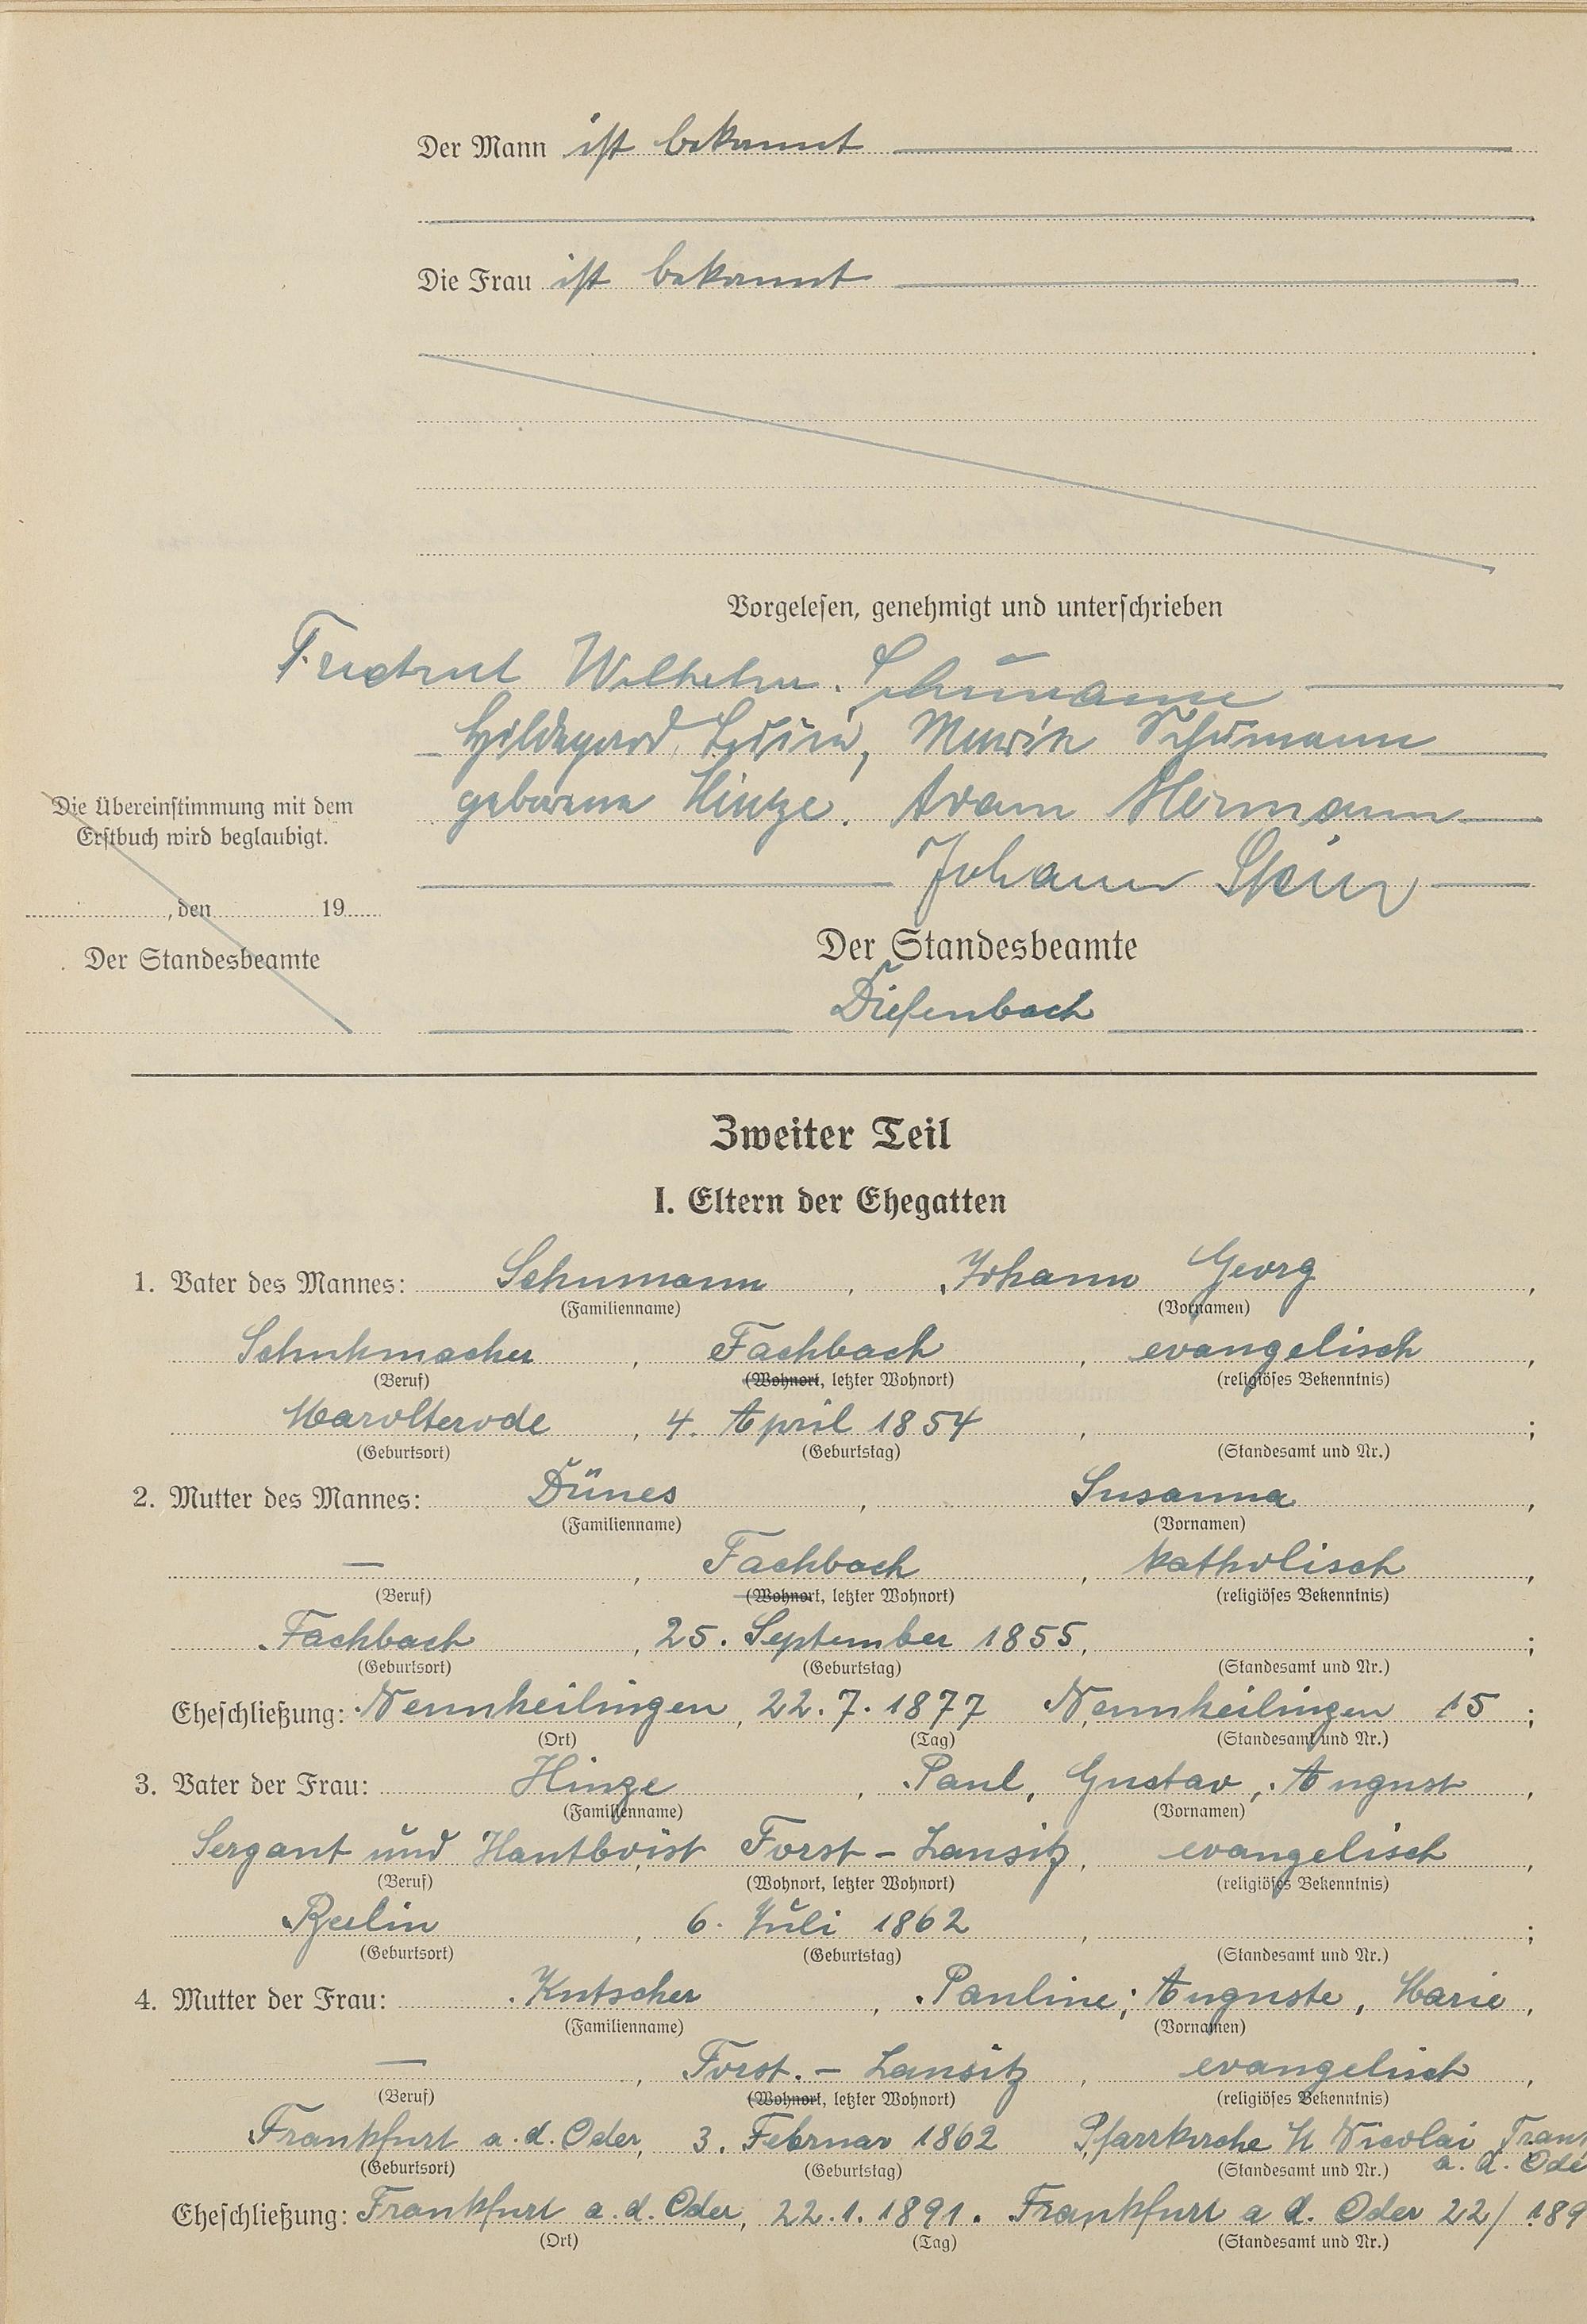 Der Mann ist bekannt
Die Frau ist bekannt
Vorgelesen, genehmigt und unterschrieben
Wilhelm Schumann
Hildegard, Luise, Marie Schumann
geborene Hinze. Adam Hermann
Johann
Die Übereinstimmung mit dem
Erstbuch wird beglaubigt.
, den 19
Der Standesbeamte
Der Standesbeamte
Diefenbach
Zweiter Teil
I. Eltern der Ehegatten
1. Vater des Mannes: Schumann, Johann Georg,
(Familienname) (Vornamen)
Schuhmacher, Fachbach, evangelisch,
(Beruf) (Wohnort, letzter Wohnort) (religiöses Bekenntnis)
Marolterode, 4. April 1854, ;
(Geburtsort) (Geburtstag) (Standesamt und Nr.)
2. Mutter des Mannes: Dünes, Susanna,
(Familienname) (Vornamen)
—, Fachbach, katholisch,
(Beruf) (Wohnort, letzter Wohnort) (religiöses Bekenntnis)
Fachbach, 25. September 1855, ;
(Geburtsort) (Geburtstag) (Standesamt und Nr.)
Eheschließung: Nennheilingen, 22.7.1877 Nennheilingen 15;
(Ort) (Tag) (Standesamt und Nr.)
3. Vater der Frau: Hinze, Paul, Gustav, August,
(Familienname) (Vornamen)
Sergant und Hautboist Forst - Lausitz, evangelisch,
(Beruf) (Wohnort, letzter Wohnort) (religiöses Bekenntnis)
Berlin, 6. Juli 1862, ;
(Geburtsort) (Geburtstag) (Standesamt und Nr.)
4. Mutter der Frau: Kutscher, Pauline, Auguste, Marie,
(Familienname) (Vornamen)
—, Forst. - Lausitz, evangelisch,
(Beruf) (Wohnort, letzter Wohnort) (religiöses Bekenntnis)
Frankfurt a.d. Oder, 3. Februar 1862 Pfarrkirche St Nicolai Frank
a. d. Ode
(Geburtsort) (Geburtstag) (Standesamt und Nr.)
Eheschließung: Frankfurt a.d. Oder, 22.1.1891. Frankfurt a d. Oder 22/189
(Ort) (Tag) (Standesamt und Nr.)